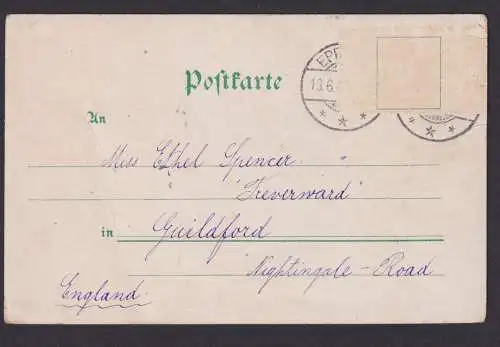 Postkarte
An
Miss Ethel Spencer.
"Treverward"
in Guildford
Nightingale-Road
England.